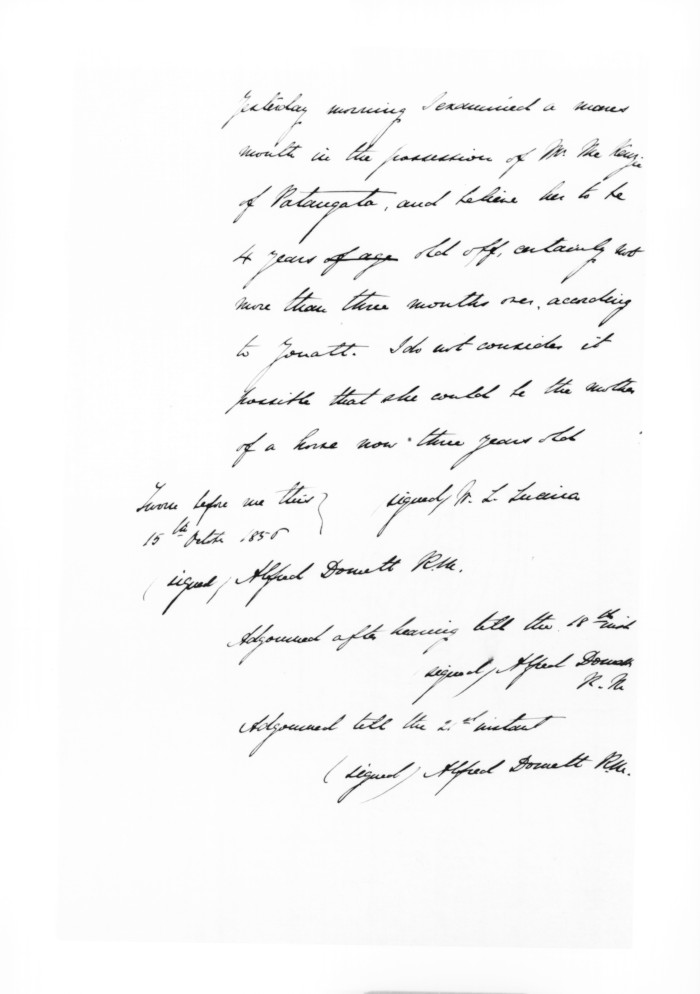 Yesterday morning I examined a mares
mouth in the possession of Mr. McKenzie
of Patangata, and believe her to be
4 years of age old off, certainly not
more than three months over, according
to Youatt. I do not consider it
possible that she could be the mother
of a horse now three years old
Sworn before me this } signed) W. L.
15th October 1856
(signed) Alfred Domett R.M.
Adjourned after hearing till the 18th inst
signed) Alfred Domett
R. M
Adjourned till the instant
(signed) Alfred Domett R.M.